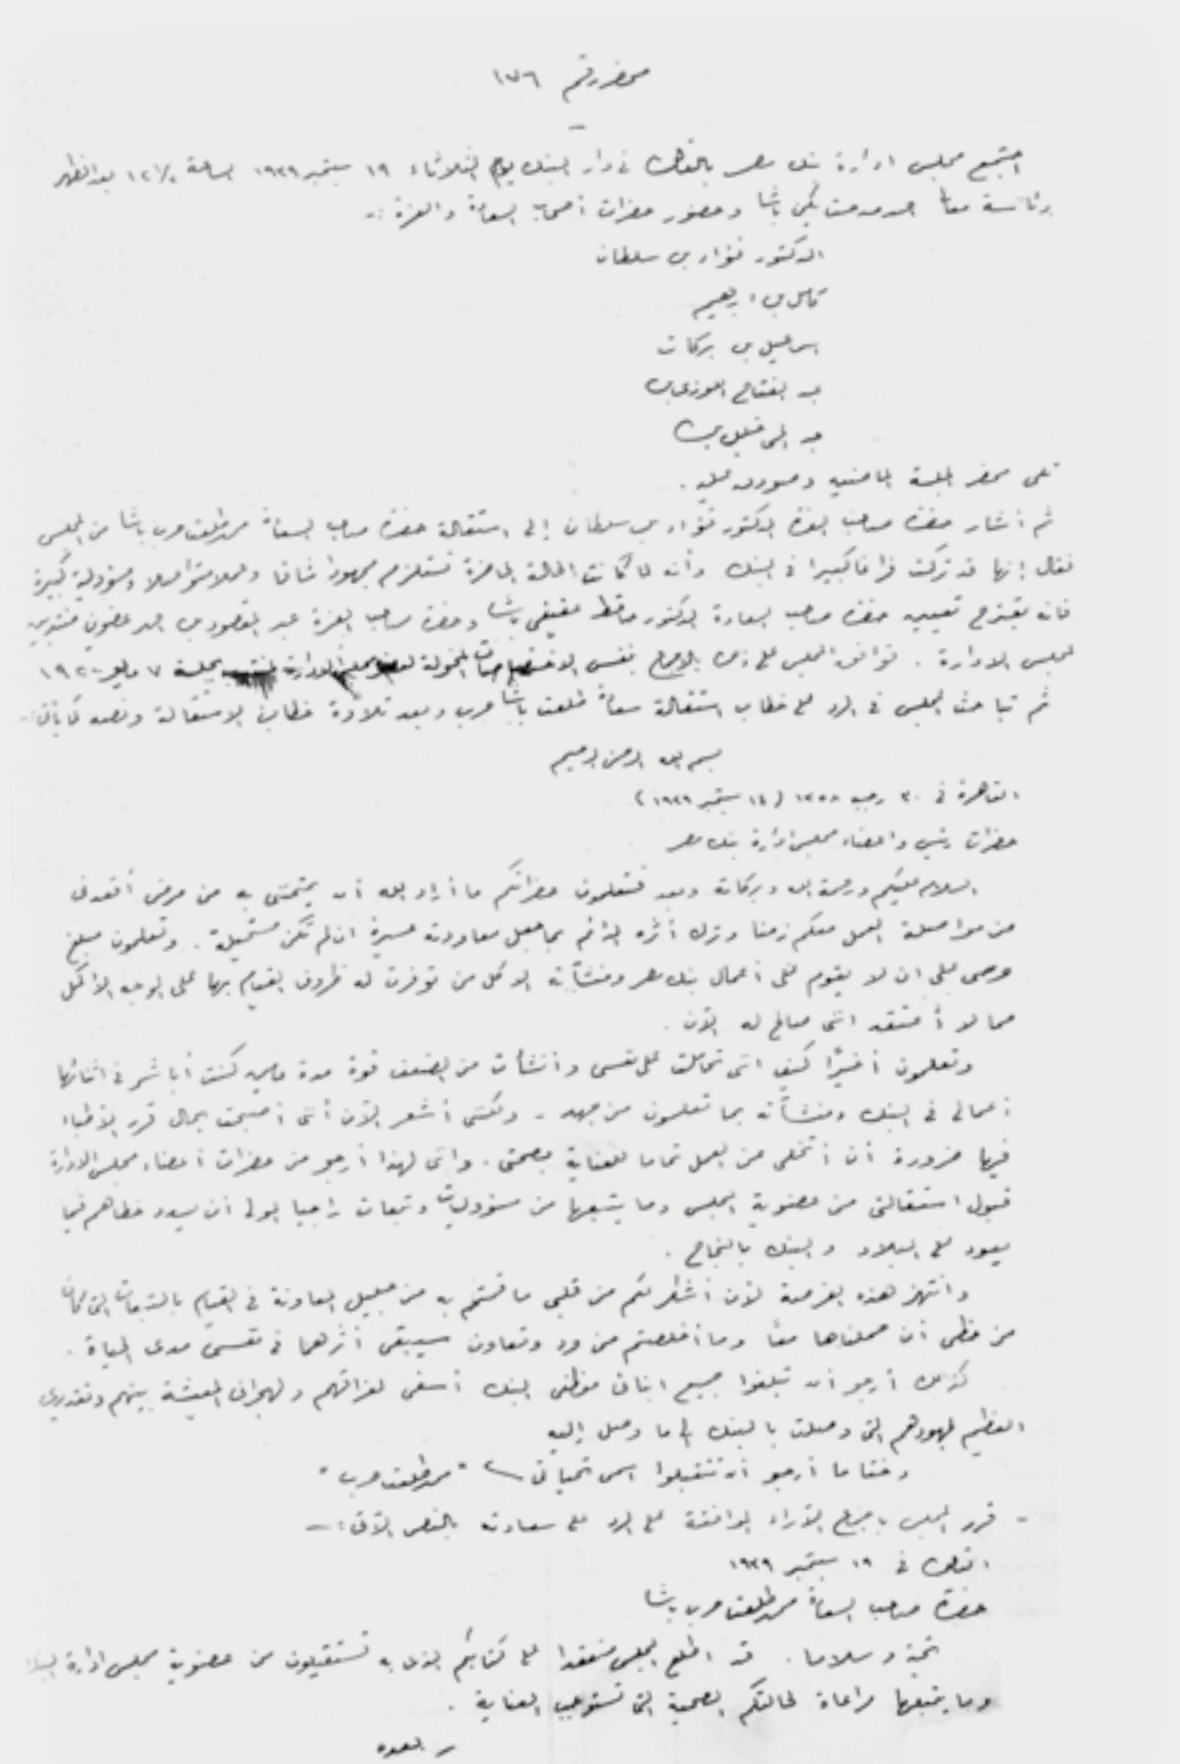 محضر رقم ١٧٦
اجتمع مجلس ادارة بنك مصر بالقاهرة فى دار البنك يوم الثلاثاء ١٩ سبتمبر ١٩٣٩ الساعة ١٢ ١/٢ بعد الظهر
برئاسة معالى احمد مدحت يكن باشا وحضور حضرات أصحاب السعادة والعزة :-
الدكتور فؤاد بك سلطان
كامل بك ابراهيم
اسماعيل بك بركات
عبد الفتاح اللوزى بك
عبد الحى خليل بك
تلى محضر الجلسة الماضية وصودق عليه .
ثم أشار حضرة صاحب العزة الدكتور فؤاد بك سلطان إلى استقالة حضرة صاحب السعادة محمد طلعت حرب باشا من المجلس
فقال إنها قد تركت فراغا كبيرا فى البنك وأنه لما كانت الحالة الحاضرة تستلزم مجهودا شاقا وعملا متواصلا ومسؤولية كبيرة
فانه يقترح تعيين حضرة صاحب السعادة الدكتور حافظ عفيفى باشا وحضرة صاحب العزة عبد المقصود بك احمد عضوين منتدبين
لمجلس الادارة . فوافق المجلس على ذلك بالاجماع بنفس الاختصاصات المخولة بجلسة ٧ مايو ١٩٢٠
ثم تباحث المجلس فى الرد على خطاب استقالة سعادة طلعت باشا حرب وبعد تلاوة خطاب الاستقالة ونصه كالآتى :-
بسم الله الرحمن الرحيم
القاهرة فى ٣٠ رجب ١٣٥٨ (١٤ سبتمبر ١٩٣٩)
حضرات رئيس واعضاء مجلس ادارة بنك مصر
السلام عليكم ورحمة الله وبركاته وبعد فتعلمون حضراتكم ما أراد الله أن يمتحننى به من مرض أقعدنى
عن مواصلة العمل معكم زمنا وترك أثره الدائم بما جعل معاودته عسيرة ان لم تكن مستحيلة . وتعلمون مبلغ
حرصى على ان لا يقوم على أعمال بنك مصر ومنشآته الا كل من توفرت له ظروف القيام بها على الوجه الأكمل
مما لا أعتقد انى صالح له الآن .
وتعلمون أخيرًا كيف انى تحاملت على نفسى وأنشأت من الضعف قوة مدة عامين كنت أباشر فى اثنائها
أعمالى فى البنك ومنشآته بما تعلمون من جهد . ولكنى أشعر الآن أنى أصبحت بحال قرر الأطباء
فيها ضرورة أن أتخلى عن العمل تماما للعناية بصحتى . وانى لهذا أرجو من حضرات أعضاء مجلس الادارة
قبول استقالتى من عضوية المجلس وما يتبعها من مسؤوليات وتبعات راجيا المولى أن يسدد خطاهم فيما
يعود على البلاد والبنك بالنجاح .
وانتهز هذه الفرصة لأن أشكر لكم من قلبى ما قمتم به من جميل المعاونة فى القيام بالتبعات التى كان
من حظى أن حملناها معًا وما أخلصتم من ود وتعاون سيبقى أثرهما فى نفسى مدى الحياة .
كذلك أرجو أن تبلغوا جميع ابنائى موظفى البنك أسفى لفراقهم ولهجران المعيشة بينهم وتقديرى
العظيم لجهودهم التى وصلت بالبنك إلى ما وصل إليه
وختاما أرجو أن تتقبلوا اسمى تحياتى "محمد طلعت حرب"
- قرر المجلس باجماع الآراء الموافقة على الرد على سعادته بالنص الآتى :-
القاهرة فى ١٩ سبتمبر ١٩٣٩
حضرة صاحب السعادة محمد طلعت حرب باشا
تحية وسلاما . قد اطلع المجلس منعقدا على كتابكم الذى به تستقيلون من عضوية مجلس ادارة البنك
وما يتبعها مراعاة لحالتكم الصحية التى تستوجب العناية .